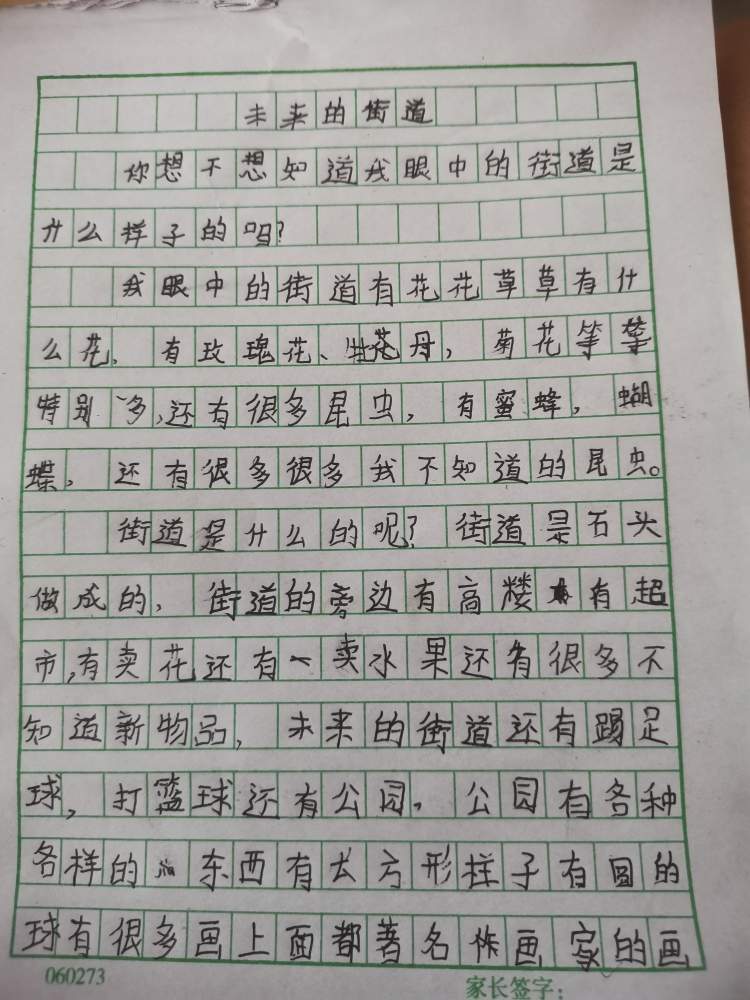 未来的街道
你想不想知道我眼中的街道是
什么样子的吗?
我眼中的街道有花花草草有什
么花、有玫瑰花、牡花母,菊花等等
特别多,还有很多昆虫,有蜜蜂,蝴
蝶,还有很多很多我不知道的昆虫。
街道是什么的呢?街道是石头
做成的,街道的旁边有高楼有超
市,有卖花还有一卖水果还有很多不
知道新物品,未来的街道还有踢足
球,打篮球还有公园,公园有各种
各样的东西有长方形样子有圆的
球有很多画上面都著名作画家的画
060273
家长签字: